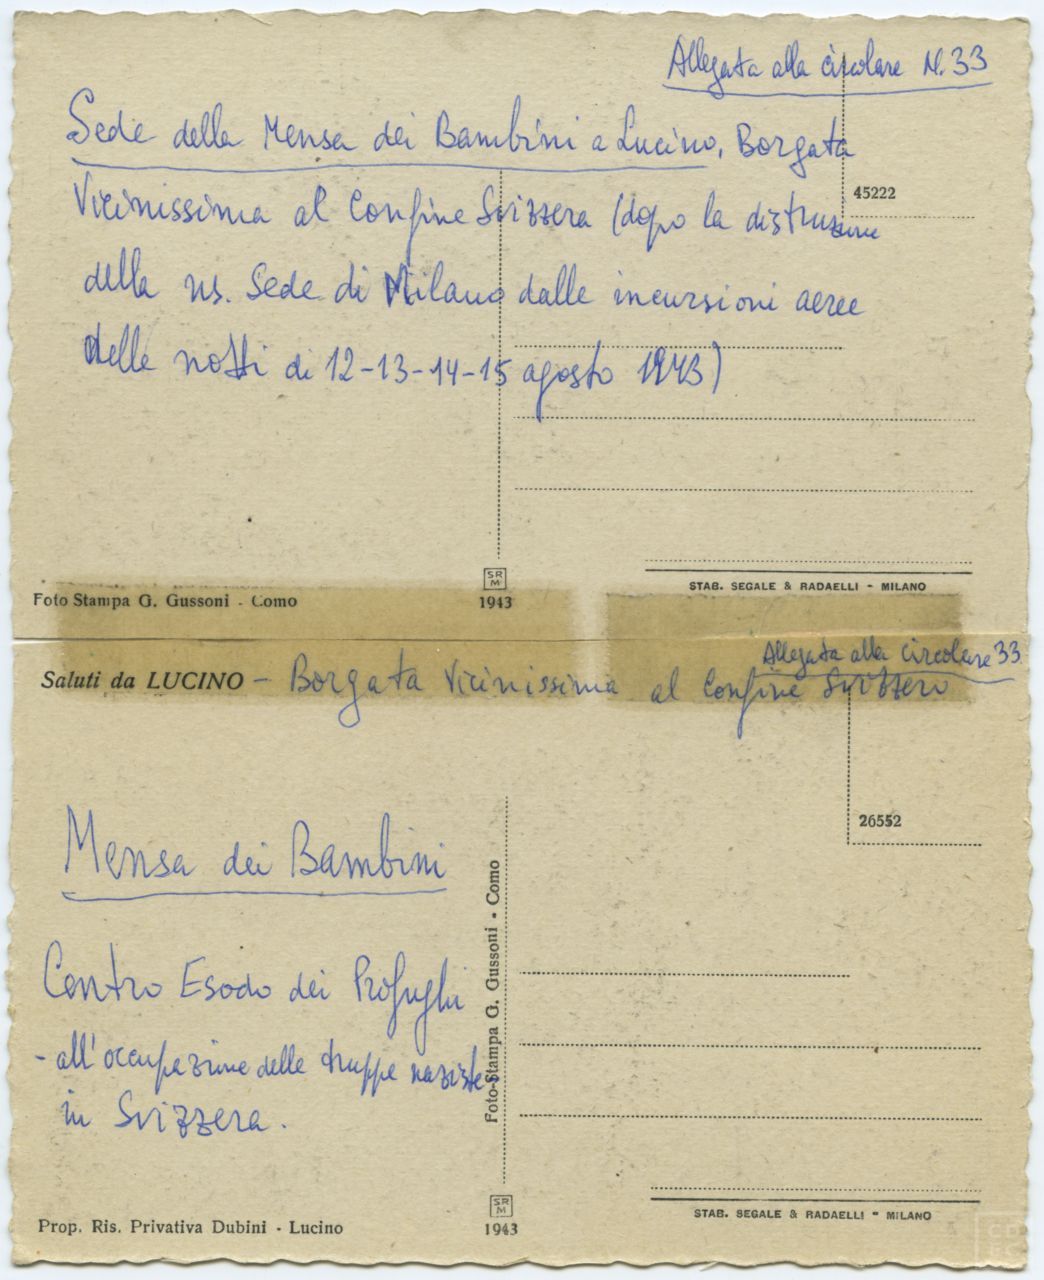 Allegata alla circolare N. 33
Sede della Mensa dei Bambini a Lucino, Borgata
45222
Vicinissima al Confine Svizzera (dopo la distruzione
della ns. Sede di Milano dalle incursioni aeree
delle notti di 12-13-14-15 agosto 1943)
SRM
STAB. SEGALE & RADAELLI - MILANO
Foto Stampa G. Gussoni - Como
1943
Allegata alla circolare 33
Saluti da LUCINO - Borgata Vicinissima al Confine Svizzero
26552
Mensa dei Bambini
Foto-Stampa G. Gussoni - Como
Centro Esodo dei Profughi
- all'occupazione delle truppe naziste -
in Svizzera.
SRM
STAB. SEGALE & RADAELLI - MILANO
Prop. Ris. Privativa Dubini - Lucino
1943
CDEC